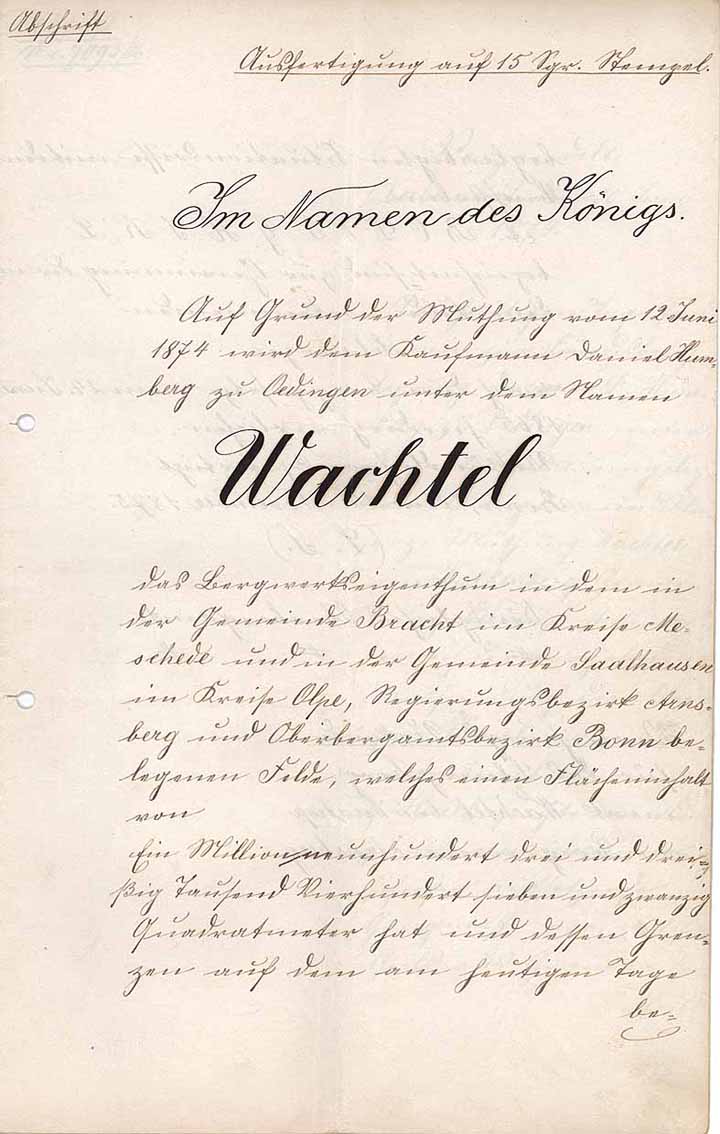 Abschrift
Ausfertigung auf 15 Sgr. Stempel.
Im Namen des Königs.
Auf Grund der Muthung vom 12 Juni
1874 wird dem Kaufmann Daniel Hum-
berg zu Oedingen unter dem Namen
Wachtel
das Bergwerkseigenthum in dem in
der Gemeinde Bracht im Kreise Me-
schede und in der Gemeinde Saalhausen
im Kreise Olpe, Regierungsbezirk Arns-
berg und Oberbergamtsbezirk Bonn be-
legenen Felde, welches einen Flächeninhalt
von
Ein Million neunhundert drei und drei-
ßig Tausend Vierhundert sieben und zwanzig
Quadratmeter hat und dessen Gren-
zen auf dem am heutigen Tage
be-